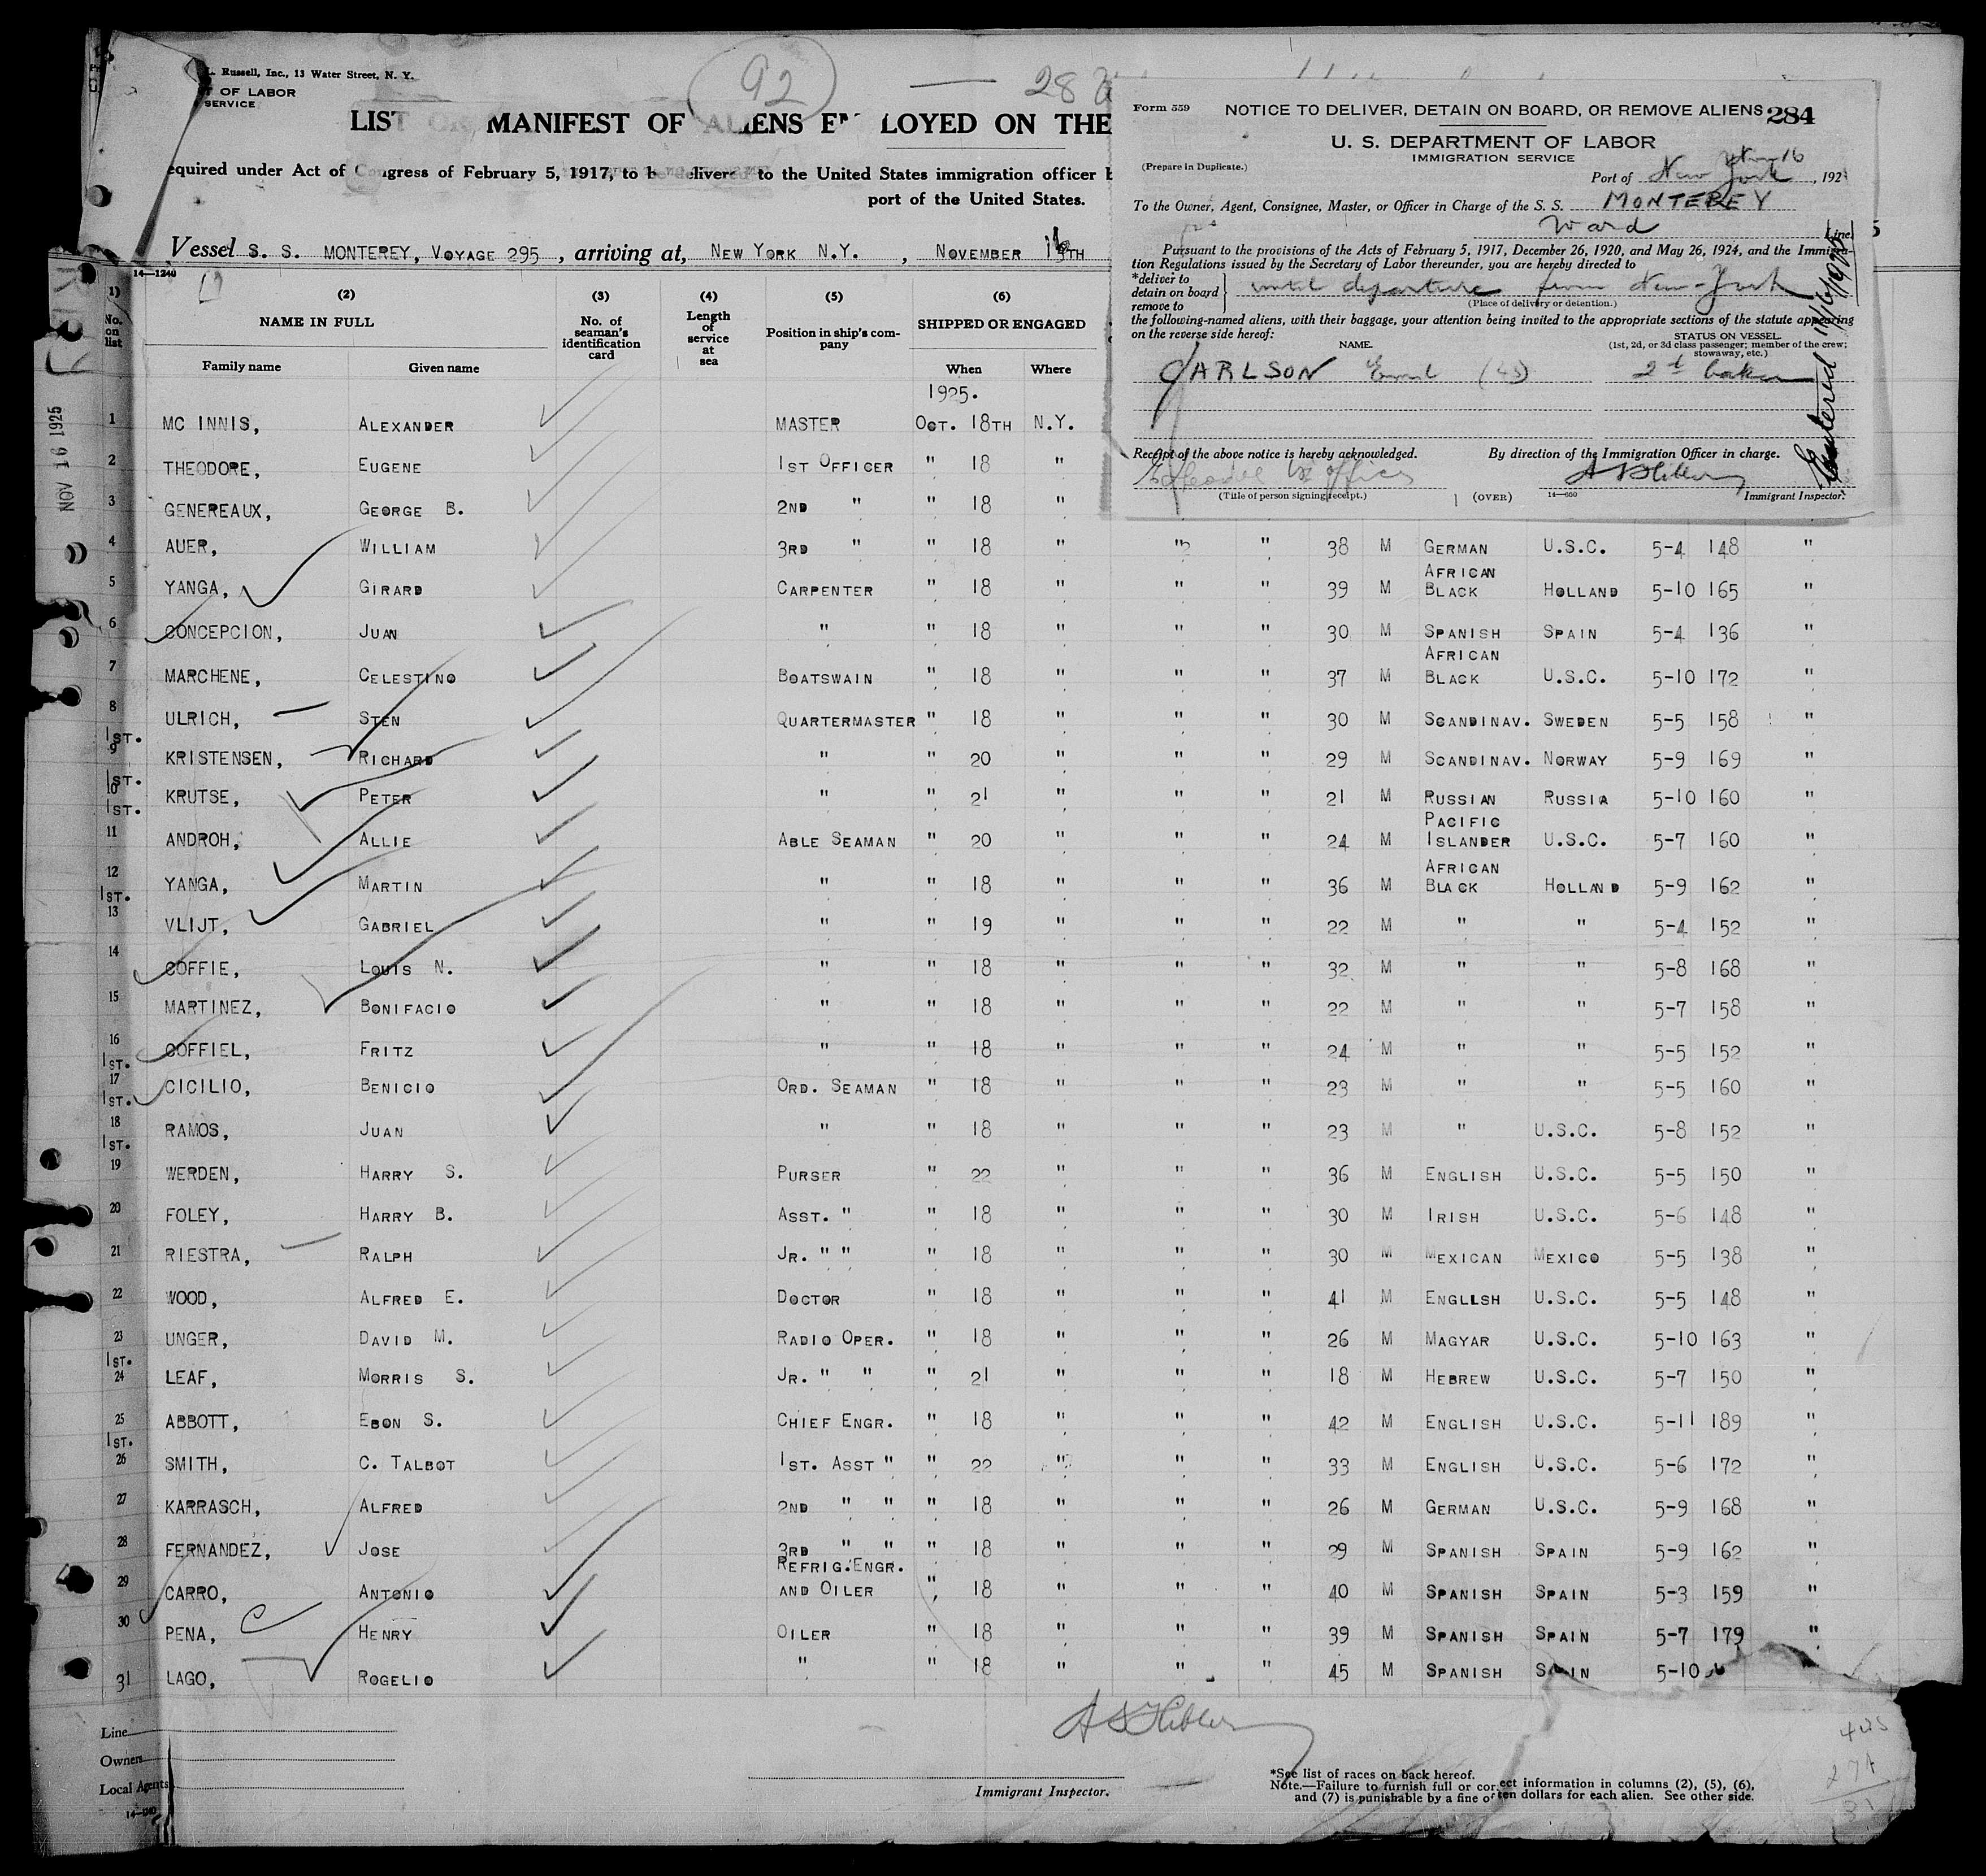 L. Russell, Inc., 13 Water Street, N. Y.
T OF LABOR
SERVICE
92
28
LIST OR MANIFEST OF ALIENS EMPLOYED ON THE
equired under Act of Congress of February 5, 1917, to be delivered to the United States immigration officer b
port of the United States.
Vessel S. S. MONTEREY, VOYAGE 295, arriving at, NEW YORK N.Y., NOVEMBER 16TH
Form 559
NOTICE TO DELIVER, DETAIN ON BOARD, OR REMOVE ALIENS 284
U. S. DEPARTMENT OF LABOR
IMMIGRATION SERVICE
(Prepare in Duplicate.)
Port of New York Nov 16, 192
To the Owner, Agent, Consignee, Master, or Officer in Charge of the S. S. MONTEREY
Ward Line.
Pursuant to the provisions of the Acts of February 5, 1917, December 26, 1920, and May 26, 1924, and the Immigra-
tion Regulations issued by the Secretary of Labor thereunder, you are hereby directed to
*deliver to
detain on board
remove to
until departure from New-York
(Place of delivery or detention.)
the following-named aliens, with their baggage, your attention being invited to the appropriate sections of the statute appearing
on the reverse side hereof:
NAME.
STATUS ON VESSEL.
(1st, 2d, or 3d class passenger; member of the crew;
stowaway, etc.)
CARLSON Emil (45) 2d baker
Receipt of the above notice is hereby acknowledged.
By direction of the Immigration Officer in charge.
(Title of person signing receipt.)
(OVER)
14—650
Immigrant Inspector.
Entered 11/16/1925
14—1240
(1) (2) (3) (4) (5) (6)
No. on list
NAME IN FULL
No. of seaman's identification card
Length of service at sea
Position in ship's company
SHIPPED OR ENGAGED
Family name Given name When Where
1925.
NOV 16 1925
1 MC INNIS, ALEXANDER MASTER OCT. 18TH N.Y.
2 THEODORE, EUGENE 1ST OFFICER " 18 "
3 GENEREAUX, GEORGE B. 2ND " " 18 "
4 AUER, WILLIAM 3RD " " 18 " " " 38 M GERMAN U.S.C. 5-4 148 "
5 YANGA, GIRARD CARPENTER " 18 " " " 39 M AFRICAN BLACK HOLLAND 5-10 165 "
6 CONCEPCION, JUAN " " 18 " " " 30 M SPANISH SPAIN 5-4 136 "
7 MARCHENE, CELESTINO BOATSWAIN " 18 " " " 37 M AFRICAN BLACK U.S.C. 5-10 172 "
8 ULRICH, STEN QUARTERMASTER " 18 " " " 30 M SCANDINAV. SWEDEN 5-5 158 "
1ST. 9 KRISTENSEN, RICHARD " " 20 " " " 29 M SCANDINAV. NORWAY 5-9 169 "
1ST. 10 KRUTSE, PETER " " 21 " " " 21 M RUSSIAN RUSSIA 5-10 160 "
1ST. 11 ANDROH, ALLIE ABLE SEAMAN " 20 " " " 24 M PACIFIC ISLANDER U.S.C. 5-7 160 "
12 YANGA, MARTIN " " 18 " " " 36 M AFRICAN BLACK HOLLAND 5-9 162 "
1ST. 13 VLIJT, GABRIEL " " 19 " " " 22 M " " 5-4 152 "
14 COFFIE, LOUIS N. " " 18 " " " 32 M " " 5-8 168 "
15 MARTINEZ, BONIFACIO " " 18 " " " 22 M " " 5-7 158 "
16 COFFIEL, FRITZ " " 18 " " " 24 M " " 5-5 152 "
1ST. 17 CICILIO, BENICIO ORD. SEAMAN " 18 " " " 23 M " " 5-5 160 "
1ST. 18 RAMOS, JUAN " " 18 " " " 23 M " U.S.C. 5-8 152 "
1ST. 19 WERDEN, HARRY S. PURSER " 22 " " " 36 M ENGLISH U.S.C. 5-5 150 "
20 FOLEY, HARRY B. ASST. " " 18 " " " 30 M IRISH U.S.C. 5-6 148 "
21 RIESTRA, RALPH JR. " " " 18 " " " 30 M MEXICAN MEXICO 5-5 138 "
22 WOOD, ALFRED E. DOCTOR " 18 " " " 41 M ENGLLSH U.S.C. 5-5 148 "
23 UNGER, DAVID M. RADIO OPER. " 18 " " " 26 M MAGYAR U.S.C. 5-10 163 "
1ST. 24 LEAF, MORRIS S. JR. " " " 21 " " " 18 M HEBREW U.S.C. 5-7 150 "
25 ABBOTT, EBON S. CHIEF ENGR. " 18 " " " 42 M ENGLISH U.S.C. 5-11 189 "
1ST. 26 SMITH, C. TALBOT 1ST. ASST " " 22 " " " 33 M ENGLISH U.S.C. 5-6 172 "
27 KARRASCH, ALFRED 2ND " " " 18 " " " 26 M GERMAN U.S.C. 5-9 168 "
28 FERNANDEZ, JOSE 3RD " " " 18 " " " 29 M SPANISH SPAIN 5-9 162 "
29 CARRO, ANTONIO REFRIG. ENGR. AND OILER " 18 " " " 40 M SPANISH SPAIN 5-3 159 "
30 PENA, HENRY OILER " 18 " " " 39 M SPANISH SPAIN 5-7 179 "
31 LAGO, ROGELIO " " 18 " " " 45 M SPANISH SPAIN 5-10 "
Line
Owners
Local Agents
14—1240
Immigrant Inspector.
*See list of races on back hereof.
Note.—Failure to furnish full or correct information in columns (2), (5), (6),
and (7) is punishable by a fine of ten dollars for each alien. See other side.